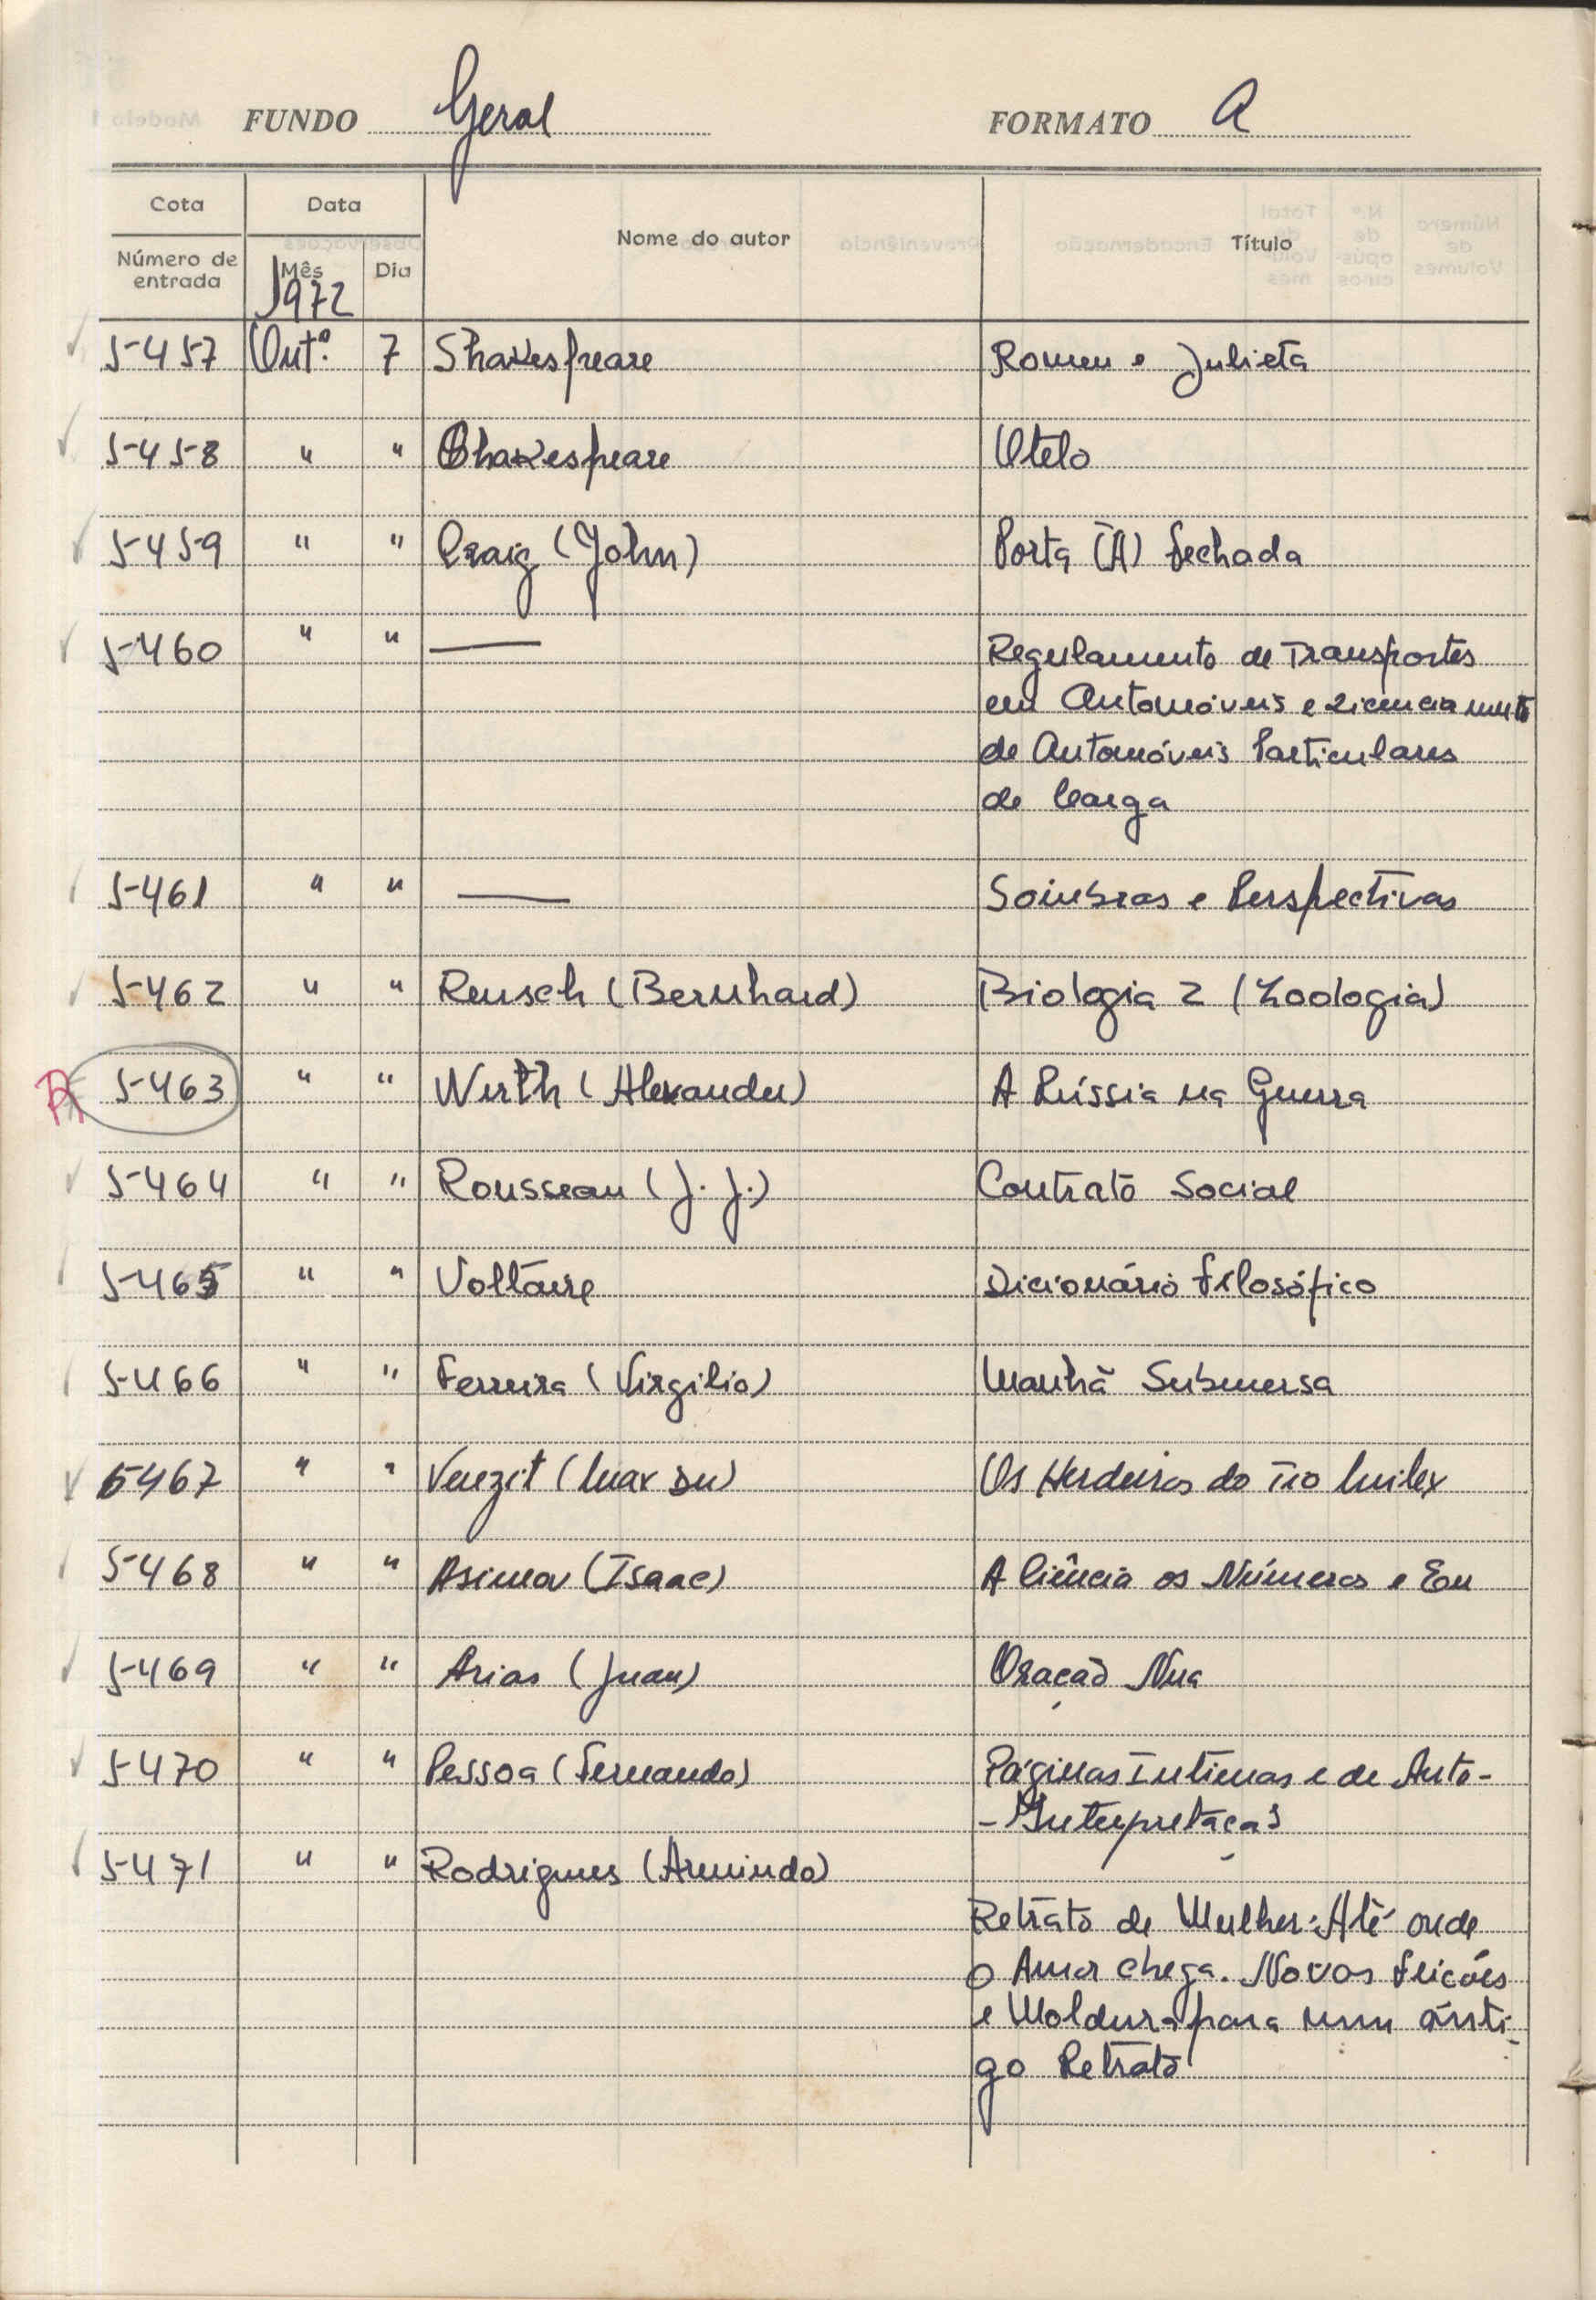 FUNDO Geral FORMATO A
Cota Data Nome do autor Título
Número de entrada Mês Dia
1972
5457 Outº. 7 Shakespeare Romeu e Julieta
5458 " " Shakespeare Otelo
5459 " " Craig (John) Porta (A) fechada
5460 " " — Regulamento de Transportes
em Automóveis e Licenciamento
de Automóveis Particulares
de Carga
5461 " " — Sombras e Perspectivas
5462 " " Rensch (Bernhard) Biologia 2 (Zoologia)
5463 " " Werth (Alexander) A Rússia na Guerra
5464 " " Rousseau (J. J.) Contrato Social
5465 " " Voltaire Dicionário Filosófico
5466 " " Ferreira (Virgilio) Manhã Submersa
5467 " " Veuzit (Max Du) Os Herdeiros do Tio
5468 " " Asimov (Isaac) A Ciência os Números e Eu
5469 " " Arias (Juan) Oração Nua
5470 " " Pessoa (Fernando) Páginas Intimas e de Auto-
-Interpretação
5471 " " Rodrigues (Armindo)
Retrato de Mulher: Até onde
o Amor chega. Novas feições
e Moldura para um anti-
go Retrato